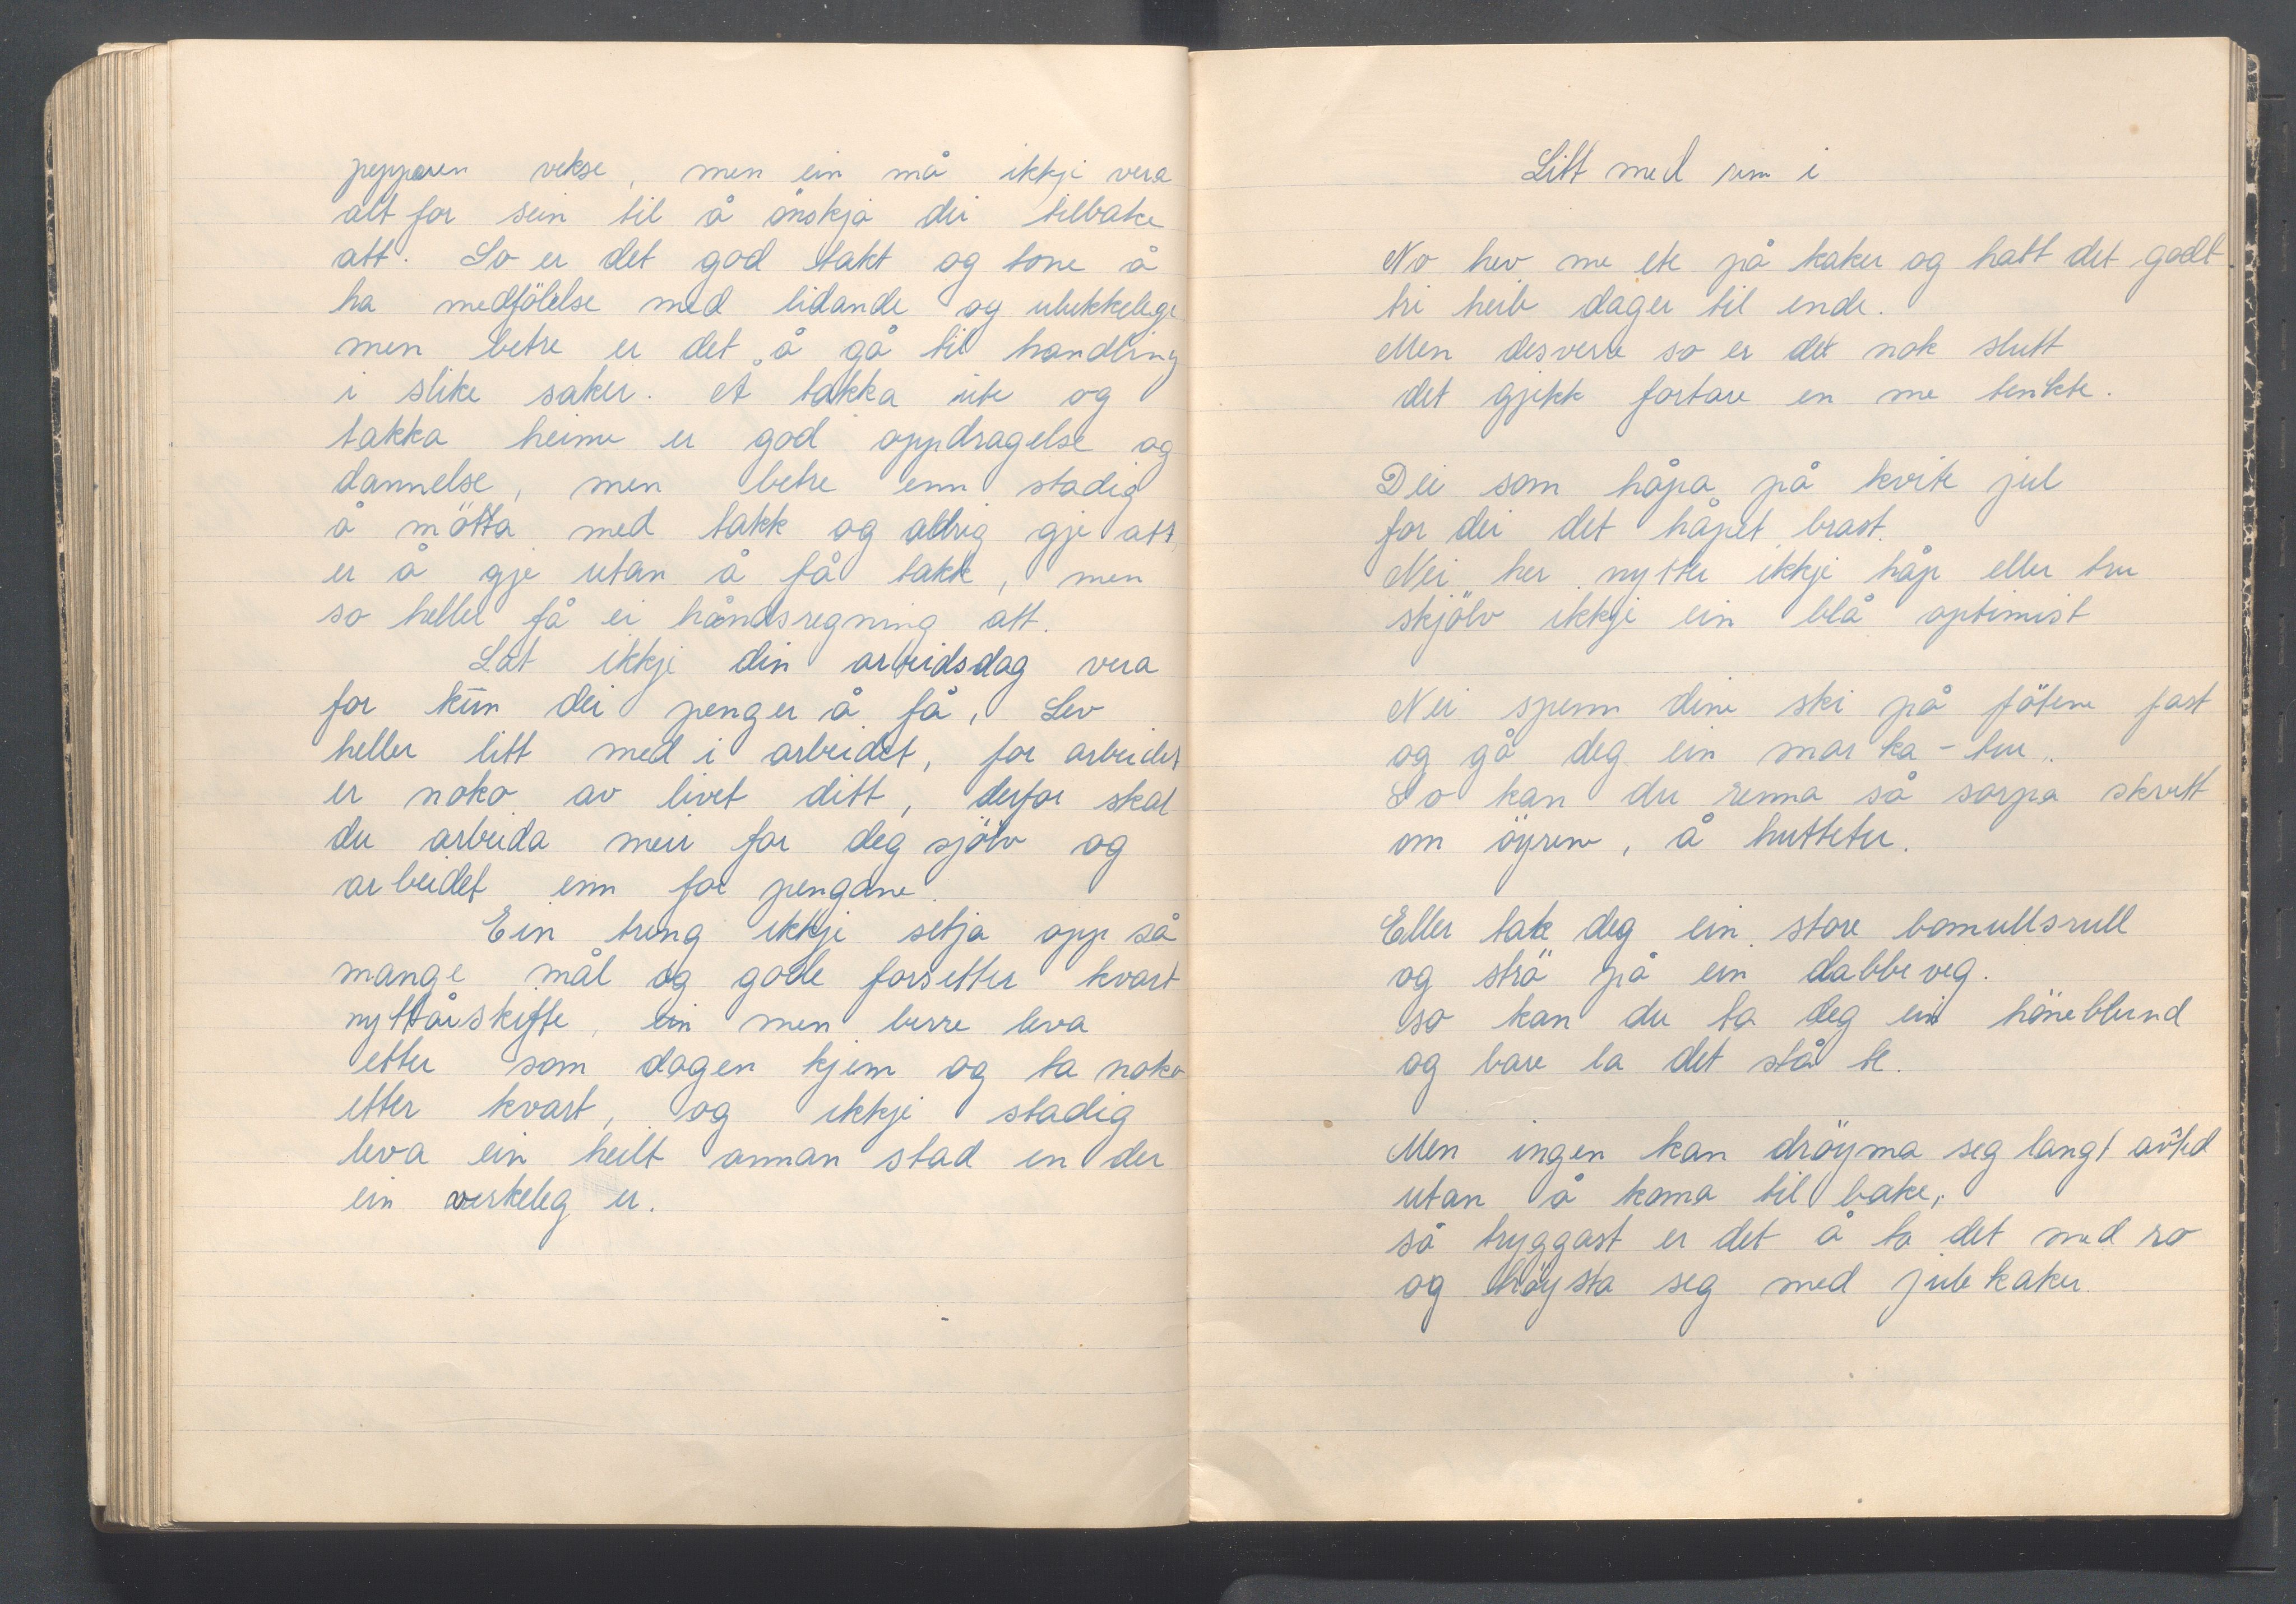 pepparen vekse, men ein må ikkje vera
alt for sein til å önskja dei tilbake
att. So er det god takt og tone å
ha medfölelse med lidande og ulukkelege
men betre er det å gå til handling
i slike saker. Å takka ute og
takka heime er god oppdragelse og
dannelse, men betre enn stadig
å mötta med takk og aldrig gje att,
er å gje utan å få takk, men
so heller få ei håndsregning att.
Lat ikkje din arbeidsdag vera
for kūn dei penger å få, Lev
heller litt med i arbeidet, for arbeidet
er noko av livet ditt, derfor skal
du arbeida meir for deg sjölv og
arbeidet enn for pengane.
Ein treng ikkje setja opp så
mange mål og gode forsetter kvart
nyttårskifte, ein men berre leva
etter som dagen kjem og ta noko
etter kvart, og ikkje stadig
leva ein heilt annan stad en der
ein verkeleg er.
Litt med rim i
No hev me ete på kaker og hatt det godt
tri heile dager til ende.
Men desverre so er det nok slutt
det gjekk fortare en me tenkte.
Dei som håpa på kvite jul
for dei det håpet brast.
Nei her nytter ikkje håp eller tru
skjölv ikkje ein blå optimist
Nei spenn dine ski på fötene fast
og gå deg ein marka-tur.
So kan du renna så sorpa skvett
om öyrene, å huttetu.
Eller tak deg ein store bomullsrull
og strö på ein dabbeveg.
so kan du ta deg ein höneblund
og bare la det stå te.
Men ingen kan dröyma seg langt avsted
utan å koma til bake,
så tryggast er det å ta det med ro
og tröysta seg med julekaker.